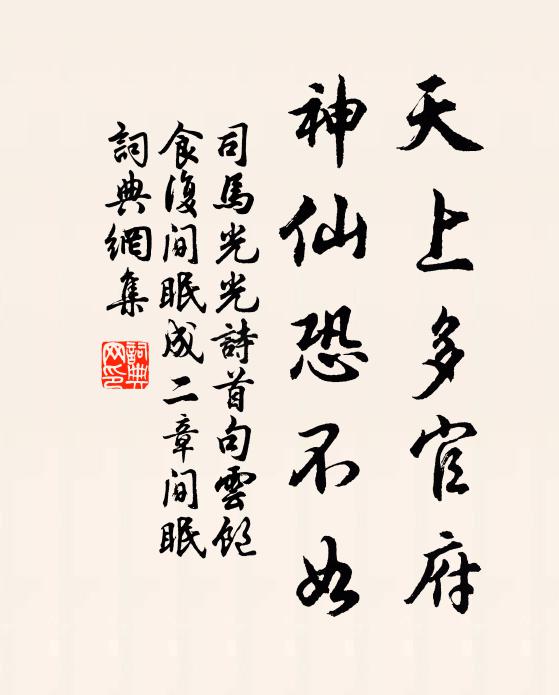 天上多官府
神仙恐不如
司馬光光詩首句雲飽
食復間眠成二章間眠
詞典網集
詞典网印